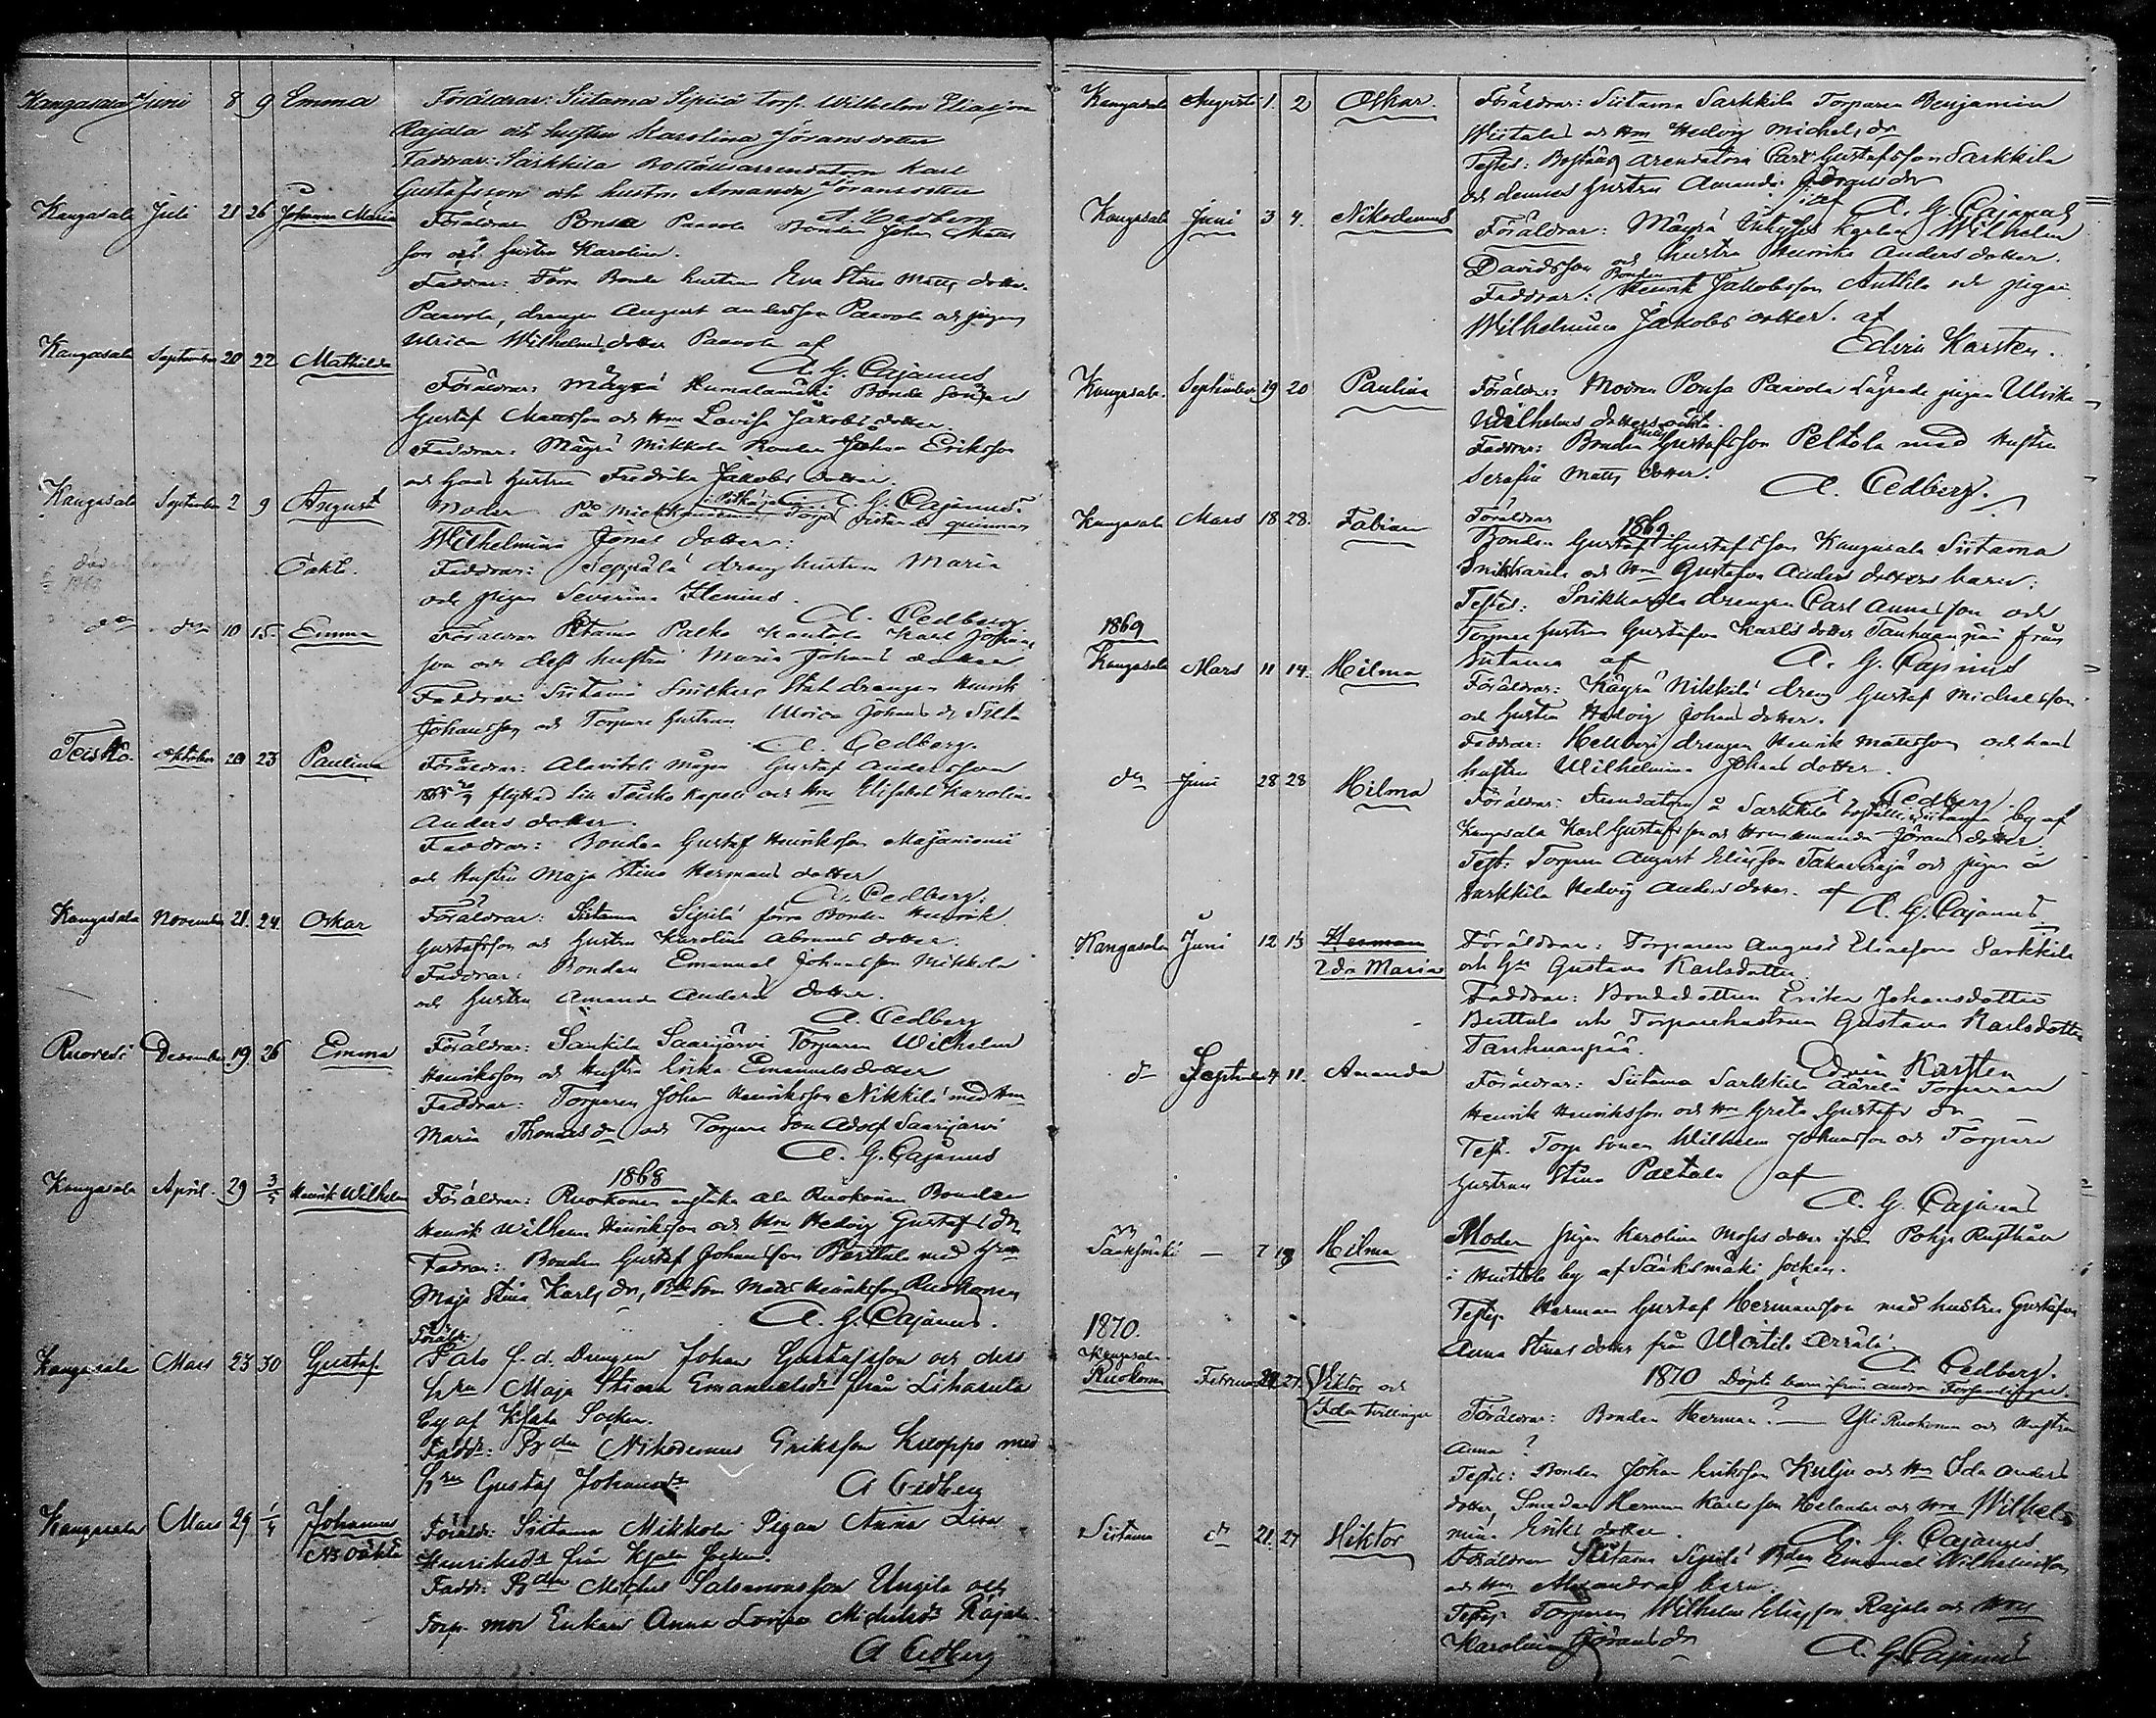 Kangasala Juni 8 9 Emma Föräldrar: Siitama Sipilä torp. Wilhelm Eliasson
Rajala och hustru Karolina Jöransdotter
Faddrar: Sarkkila Boställsarrendatorn Karl
Gustafsson och hustru Amanda Jöransdotter
Kangasala Juli 21 26 Johanna Maria Föräldrar Ponsa Paavola Bonden Johan Matts
son och hustru Karolina.
Faddrar: Förre Bonde hustrun Eva Stina Matts dotter
Paavola, drengen August andersson Paavola och pigan
Ulrica Wilhelms dotter Paavola af
A. G. Cajanus
Kangasala September 20 22 Mathilda Föräldrar: Mäyrä Humalamäki Bonde Sonen
Gustaf Mattsson och Hru Lovisa Jakobs dotter.
Faddrar: Mäyrä Mikkola Bonden Johan Eriksson
och hans hustru Fredrika Jakobs dotter.
A. G. Cajanus.
Kangasala September 2 9 August Moder På Torp qvinnan
Wilhelmina Jonas dotter:
Oäkta. Faddrar: Seppälä dräng hustrun Maria
och pigan Severina Helenius.
A. Cedberg
do do 10 15. Emma Föräldrar Siitama Palko Kantola Karl Johans
son och dess hustru Maria Johans dotter
Faddrar Siitama Snickers Stat drengen Henrik
Johansson och Torpare hustrun Ulrica Johans dr
A. Cedberg.
Teisko. oktober 20 23 Paulina Föräldrar: Alavitch Mägin Gustaf Andersson
flyttad till Teisko Kapell och Hru Elisabet Karolina
Anders dotter.
Faddrar: Bonden Gustaf Henriksson Majaniemi
och Hustru Maja Stina Hermans dotter
A. Cedberg.
Kangasala November 21. 24. Oskar Föräldrar: Siitama Sipilä förre Bonden Henrik
Gustafsson och hustru Karolina Abrams dotter.
Faddrar: Bonden Emanuel Johansson Mikkola
och hustru Amanda Anders dotter.
A. Cedberg
Ruovesi December 19. 26 Emma Föräldrar: Säntilä Saarijärvi Torparen Wilhelm
Henriksson och Hustru Erika Emanuelsdotter
Faddrar: Torparen Johan Henriksson Nikkilä med Hru
Maria Thomas dr och Torpare Son Adolf Saarijärvi
A. G. Cajanus
1868
Kangasala April. 29 3/5 Henrik Wilhelm Föräldrar: Ruokonen ala Ruokonen Bonden
Henrik Wilhelm Henriksson och Hru Hedvig Gustafs dr
Fadrar: Bonden Gustaf Johansson Berttula med Hru
Maja Stina Karls dr, Bd Son Matts Henriksson Ruokonen
A. G. Cajanus.
Kangasala Mars 23 30 Gustaf Föräldr:
Palo f. d. Drengen Johan Gustafsson och dess
hru Maja Stina Emanuelsdr från Liharula
by af Kjala Socken.
Faddr: Bden Nikodemus Eriksson Knoppo med
hru Gustaf Johansdr A Cedberg
Kangasala Mars 29. 1/4 Johannes
NB oäkta Föräldr: Siitama Mikkola Pigan Anna Lisa
Henriksdr från Kjala Socken.
Faddr: Bden Michel Salomonsson Ungila och
Torp. mor Enkan Anna Lovisa Michelsdr Rajala.
A Cedberg
Kangasala Augusti 1. 2 Oskar. Föräldrar: Siitama Sarkkila Torparen Benjamin
Wiitala och Hru Hedvig Michels dr
Testes: Boställs Arendatorn Carl Gustafsson Sarkkila
och dennes hustru Amanda Görans dr
af A. G. Cajanus
Kangasala Juni 3 4. Nikodemus Föräldrar: Mäyrä Inhyses Karlen Wilhelm
Davidsson och hustru Henrika Anders dotter.
Faddrar: Bonden Henrik Jakobsson Anttila och pigan
Wilhelmina Jakobs dotter. af
Edvin Karsten.
Kangasala. September 19 20 Paulina Föräldrar: Modren Ponsa Paavola Lägrade pigan Ulrika
Wilhelms dotters oäkta.
Faddrar: Bonden Gustafsson Peltola med Hustru
Serafia Matts dotter.
A. Cedberg.
Kangasala Mars 18 28. Fabian Föräldrar
1869
Bonden Gustaf Gustafsson Kangasala Siitama
Snikkarila och Hru Gustafva Anders dotters barn:
Testes: Snikkarila drengen Carl Annasson och
Torpare hustrun Gustafva Karls dotter Tanhuanpää från
Siitama af A. G. Cajanus
1869
Kangasala Mars 11 14. Hilma Föräldrar: Käyrä Nikkilä dreng Gustaf Michelsson
och hustru Hedvig Johans dotter.
Faddrar: Hellberg drengen Henrik Mattsson och hans
hustru Wilhelmina Johans dotter.
A. Cedberg
do Juni 28 28 Hilma Föräldrar: Arendatorn å Sarkkila boställe i Siitama by af
Kangasala Karl Gustafsson och Hru Amanda Jörans dotter.
Test: Torparen August Eliasson Takaveräjä och pigan å
Sarkkila Hedvig Anders dotter. af A. G. Cajanus.
Kangasala Juni 12 13 Herman
2da Maria Föräldrar: Torparen August Eliasson Sarkkila
och hru Gustava Karlsdotter
Faddrar: Bondedottern Erika Johansdotter
Berttula och Torparehustrun Gustava Karlsdotter
Tanhuanpää.
Edvin Karsten
do September 4 11. Amanda Föräldrar: Siitama Sarkkila Torparen
Henrik Henriksson och Hru Greta Gustafs dr
Test. Torp. Sonen Wilhelm Johansson och Torpare
hustrun Stina Paltala af
A. G. Cajanus
Sääksmäki — 7 13 Hilma Moder Pigan Karolina Moses dotter ifrån Pohja Rusthåll
i Huittola by af Sääksmäki socken.
Testes Herman Gustaf Hermansson med hustru Gustafva
Anna Stinas dotter från
A. Cedberg.
1870.
1870 Döpte barn ifrån andra Församlingar
Kangasala
Ruokonen Februari 20 27. Viktor och
Ida tvillingar Föräldrar: Bonden Herman? — Yli Ruokonen och Hustru
Anna?
Testes: Bonden Johan Eriksson Kulju och Hru Ida Anders
dotter, Smeden Herman Karlsson Helander och Hru Wilhel-
mina Eriks dotter.
A. G. Cajanus
Siitama do 21. 27 Viktor Föräldrar Siitama Sipilä Bden Emanuel Wilhelmsson
och Hru Alexandras barn.
Testes Torparen Wilhelm Eliasson Rajala och Hru
Karolina Jörans dr A. G. Cajanus